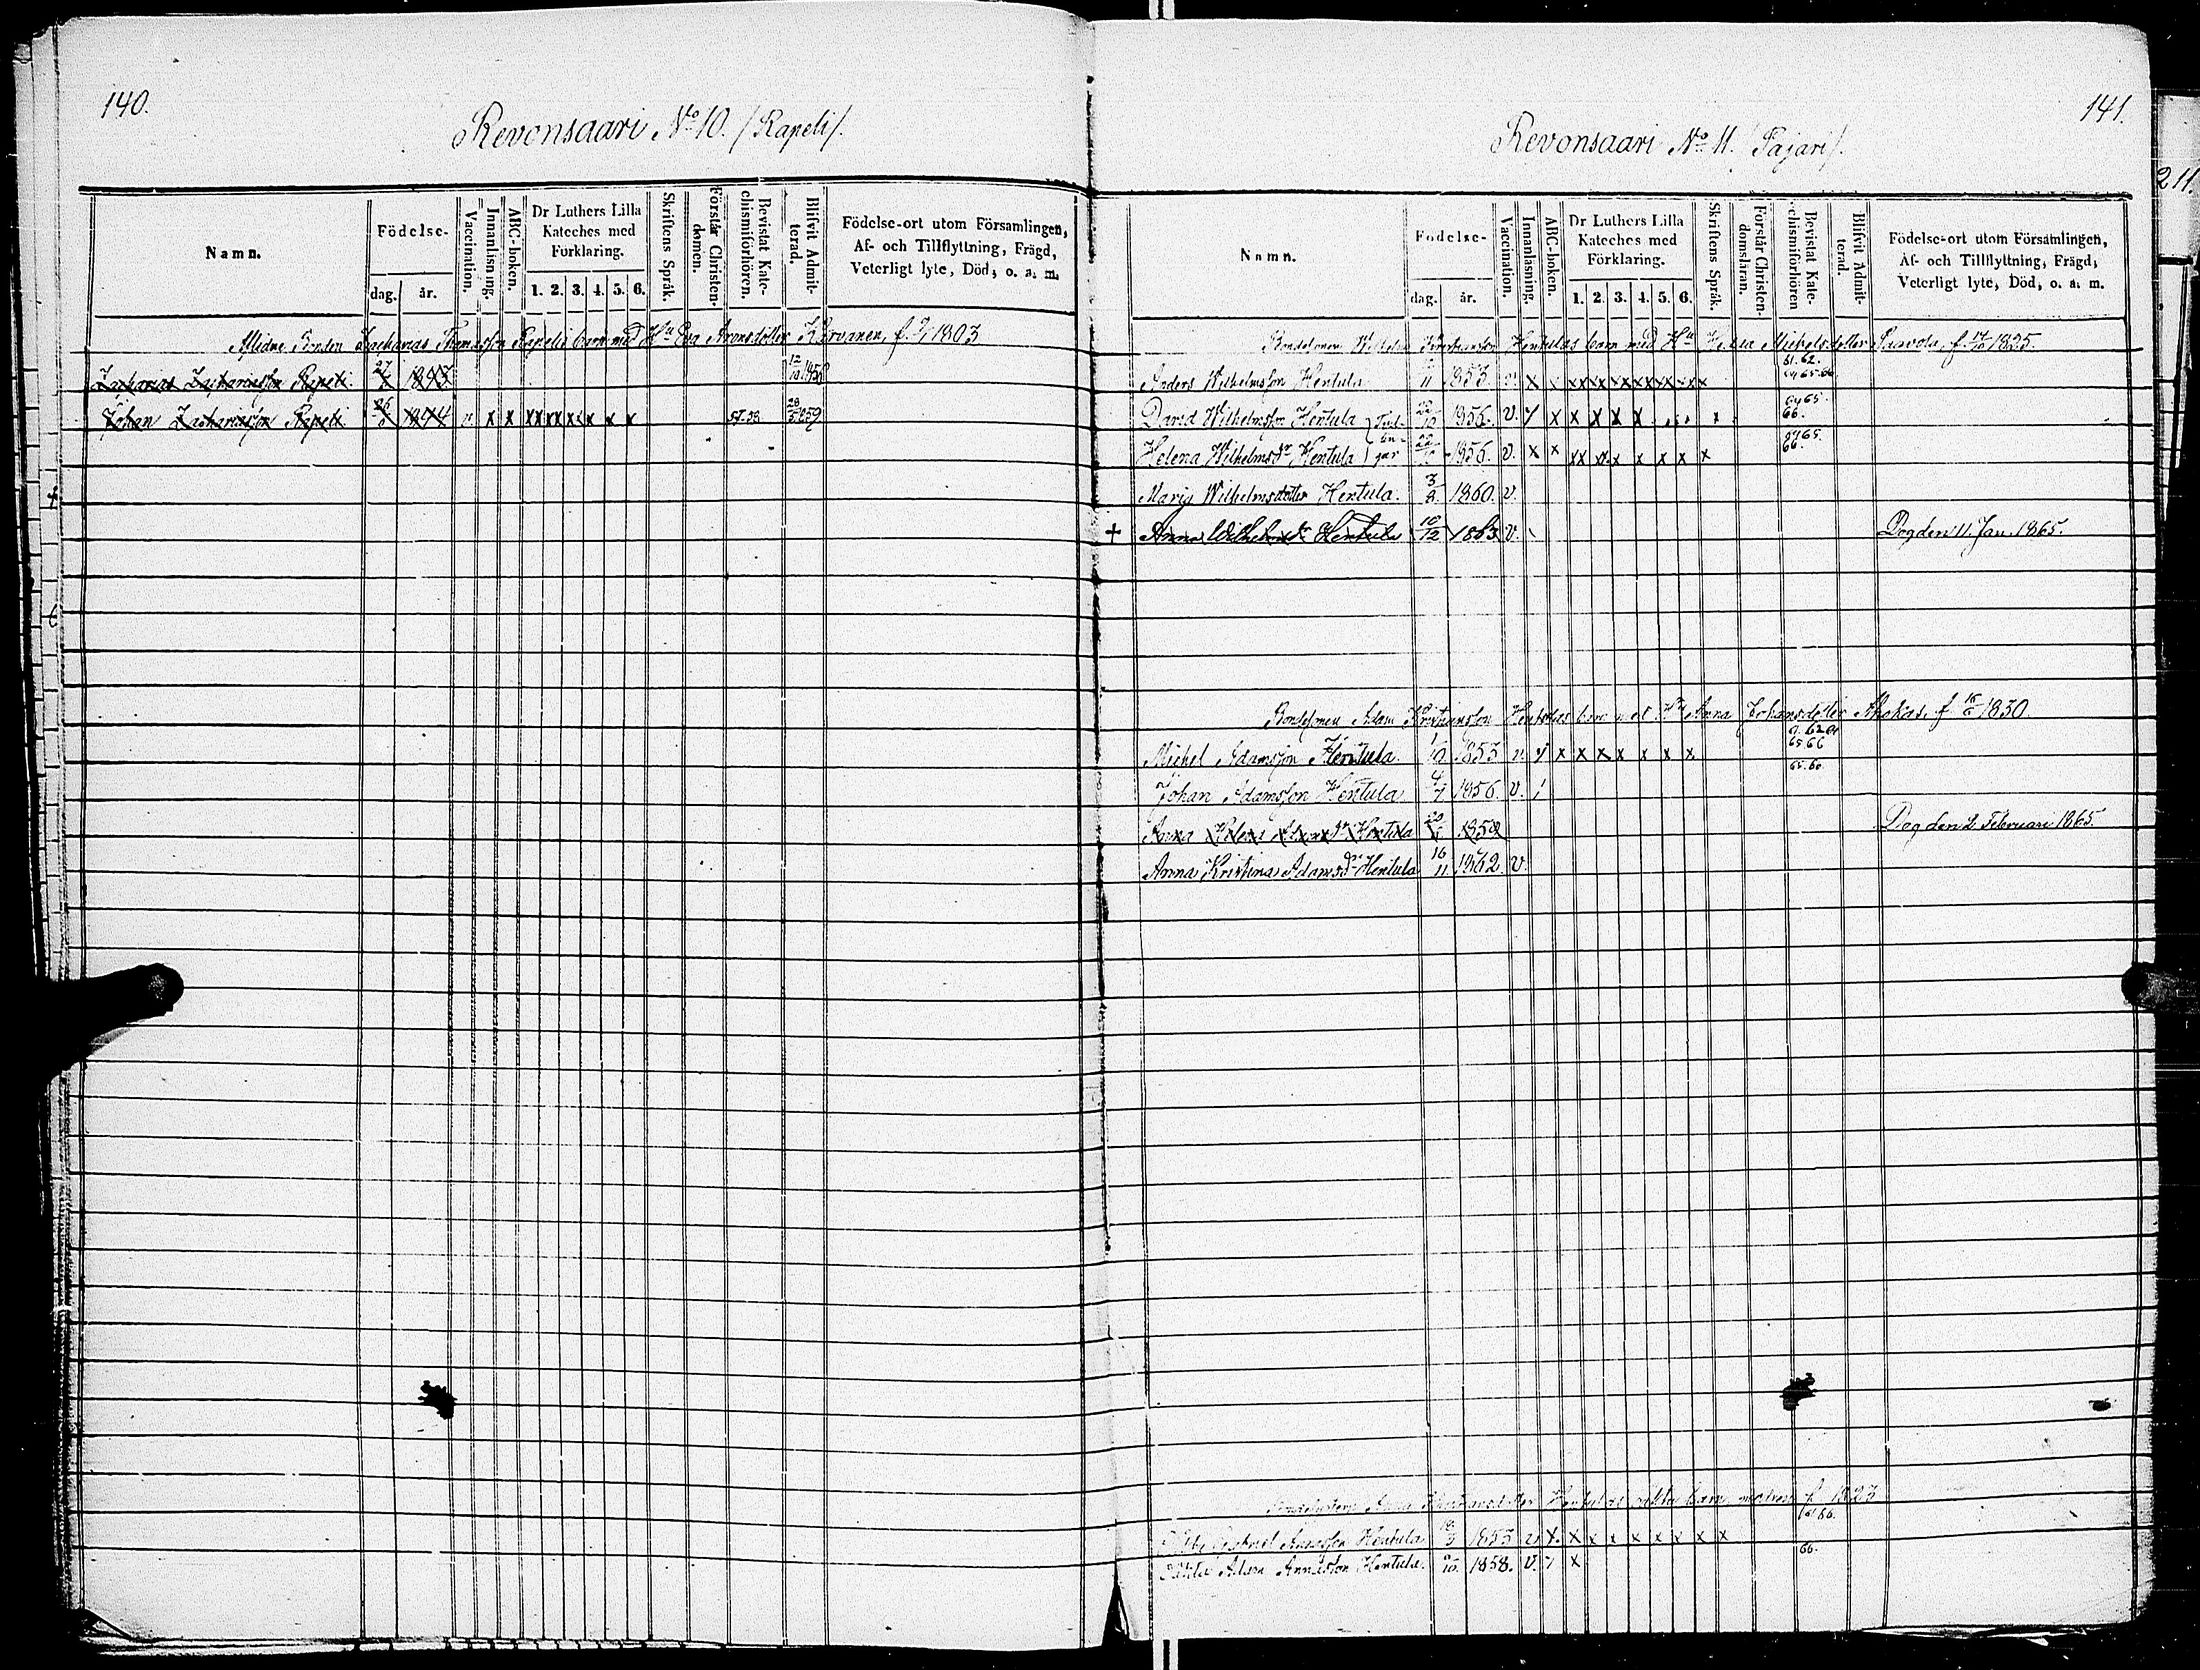 140.
Revonsaari No 10. /Rapeli/.
Namn.
Födelse-
dag. år.
Vaccination.
Innanläsning.
ABC-boken.
Dr Luthers Lilla
Kateches med
Förklaring.
1. 2. 3. 4. 5. 6.
Skriftens Språk.
Förstår Christen-
domen.
Bevistat Kate-
chismiförhören.
Blifvit Admit-
terad.
Födelse-ort utom Församlingen,
Af- och Tillflyttning, Frägd,
Veterligt lyte, Död, o. a. m.
Aflidne Bonden Zacharias Thomasson Rapelis barn med Hu Eva Aronsdotter Hirvanen, f. 1803
Zacharias Zachariasson Rapeli. 27 1843 12/10 1858
Johan Zachariasson Rapeli. 26 1844 v x x xx x x x x x 57.58 28 1859
141.
Revonsaari No 11. /Pajari/.
Namn.
Födelse-
dag. år.
Vaccination.
Innanläsning.
ABC-boken.
Dr Luthers Lilla
Kateches med
Förklaring.
1. 2. 3. 4. 5. 6.
Skriftens Språk.
Förstår Christen-
domsläran.
Bevistat Kate-
chismiförhören
Blifvit Admit-
terad.
Födelse-ort utom Församlingen,
Af- och Tillflyttning, Frägd,
Veterligt lyte, Död, o. a. m.
Bondesonen Wilhelm Kristiansson Hentulas barn med Hu Helena Mickelsdotter Paavola, f. 1825.
61. 62.
Anders Wilhelmsson Hentula. 11 1853. v. x xx xx xx xx xx xx x 64 65. 66
David Wilhelmsson Hentula 22/10 1856. v. x x x x x x x 64 65. 66.
Tvil-
lin-
gar
Helena Wilhelmsdr Hentula 22/10 1856. v. x x xx x x x x x x 64 65. 66.
Maria Wilhelmsdotter Hentula. 3/8 1860. v.
+ Anna Wilhelmsdr Hentula 10/12 1863 v. Dog den 11. Jan. 1865.
Bondesonen Adam Kristiansson Hentulas barn med Hu Anna Johansdotter Ahokas, f. 16/6 1830.
62 64
Michel Adamsson Hentula. 1/10 1853 v. x x x x x x x 65 66
Johan Adamsson Hentula 4/7 1856. v. 65. 66.
Anna Helena Adamsdr Hentula 20 1859 Dog den 2. Februari 1865.
Anna Kristina Adamsdr Hentula 16/11 1862. v.
Anna Kristiansdotter Hentulas oäkta barn, modren f. 1823
Gabriel Annasson Hentula 18/3 1853 v x. x x x x x x x x 66.
Oäkta Adam Annasson Hentula. 9/10. 1858. v. x 66.
211.